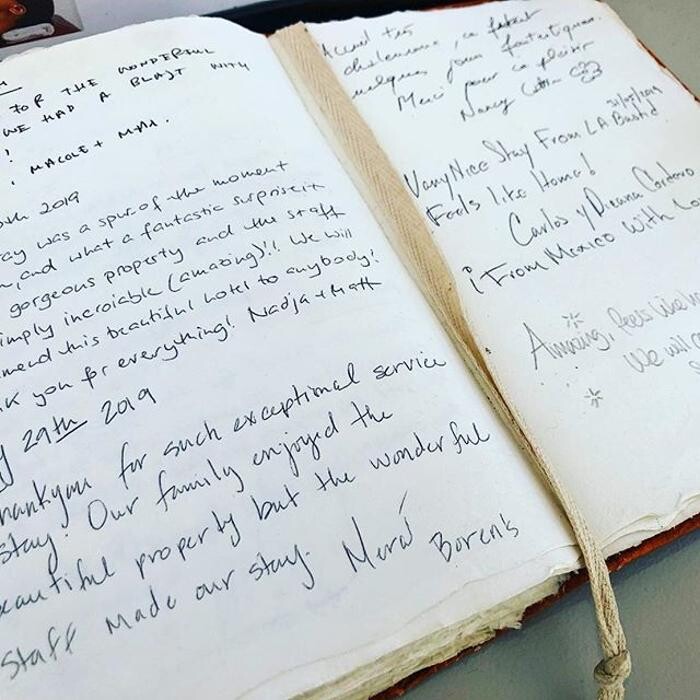 FOR THE WONDERFUL
WE HAD A BLAST WITH
!
MACOLE + MAX.
2019
ay was a spur of the moment
, and what a fantastic surprise it
gorgeous property and the staff
imply incroiable (amazing)!! We will
mend this beautiful hotel to anybody!
k you for everything! Nadja + Matt
y 29th 2019
hankyou for such exceptional service
stay. Our family enjoyed the
eautiful property but the wonderful
staff made our stay. Merci
Boren's
Accueil très
chaleureux, ce fut
quelques jours fantastiques.
Merci pour ce plaisir
Nancy
31/05/2019
Very Nice Stay From LA Bastid
Feels like Home!
Carlos y Diana Cordova
¡From Mexico With Lo
Amazing, feels like
We will